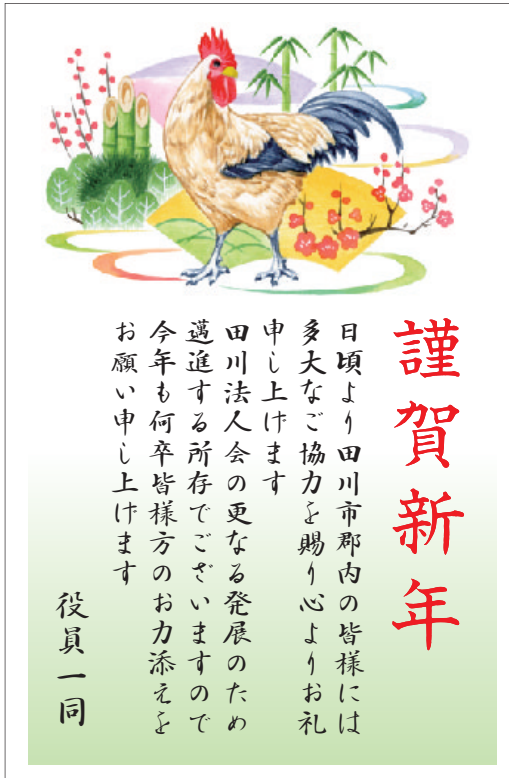 謹賀新年
日頃より田川市郡内の皆様には
多大なご協力を賜り心よりお礼
申し上げます
田川法人会の更なる発展のため
邁進する所存でございますので
今年も何卒皆様方のお力添えを
お願い申し上げます
役員一同